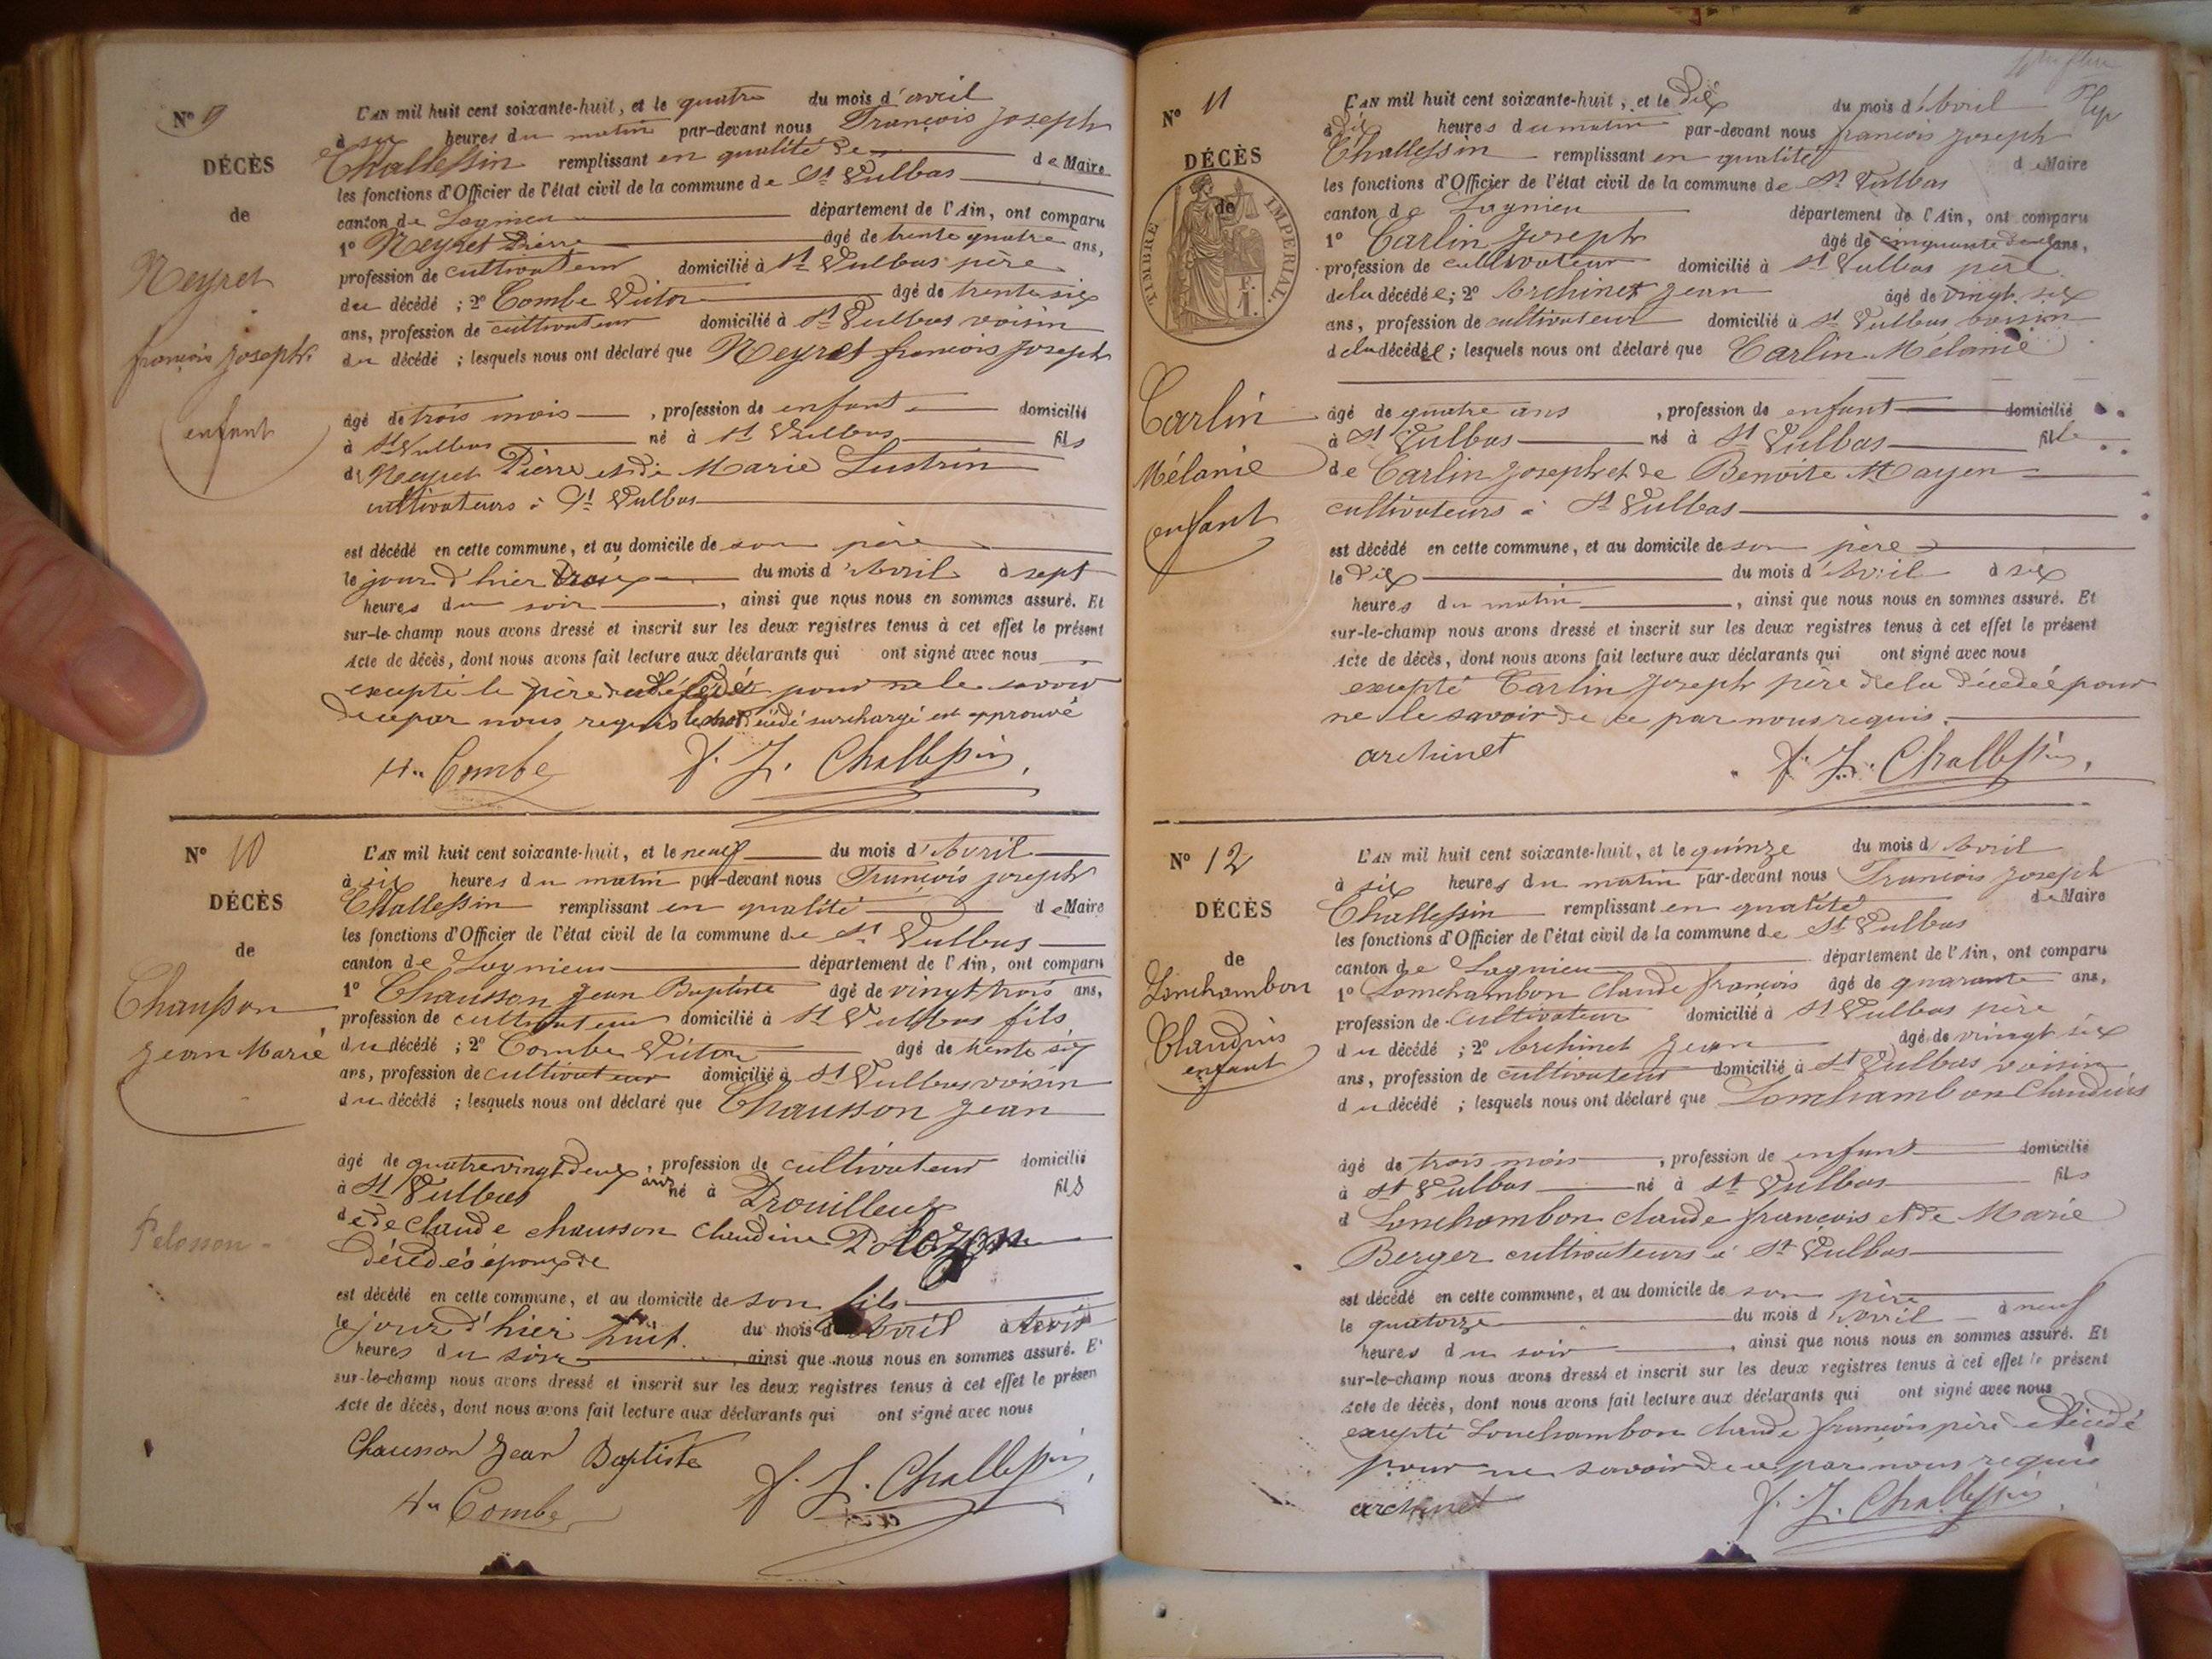 N° 9
DÉCÈS
de
Neyret
françois joseph
enfant
L'AN mil huit cent soixante-huit, et le quatre du mois d'avril
à six heures du matin par-devant nous François joseph
Challessin remplissant en qualité de de Maire
les fonctions d'Officier de l'état civil de la commune de St Vulbas
canton de Lagnieu département de l'Ain, ont comparu
1° Neyret Pierre âgé de trente quatre ans,
profession de cultivateur domicilié à St Vulbas père
du décédé ; 2° Combe Victor âgé de trente six
ans, profession de cultivateur domicilié à St Vulbas voisin
du décédé ; lesquels nous ont déclaré que Neyret françois joseph
âgé de trois mois , profession de enfant domicilié
à St Vulbas né à St Vulbas fils
d Neyret Pierre et de Marie Lustrin
cultivateurs à St Vulbas
est décédé en cette commune, et au domicile de son père
le jour d'hier trois du mois d'Avril à sept
heures du soir , ainsi que nous nous en sommes assuré. Et
sur-le-champ nous avons dressé et inscrit sur les deux registres tenus à cet effet le présent
Acte de décès, dont nous avons fait lecture aux déclarants qui ont signé avec nous
excepté le père du décédé pour ne le savoir
de ce par nous requis le mot surchargé est approuvé
Combe F. J. Challessin
N° 10
DÉCÈS
de
Chausson
Jean Marie
Pelosson
L'AN mil huit cent soixante-huit, et le neuf du mois d'Avril
à six heures du matin par-devant nous François joseph
Challessin remplissant en qualité de Maire
les fonctions d'Officier de l'état civil de la commune de St Vulbas
canton de Lagnieu département de l'Ain, ont comparu
1° Chausson Jean Baptiste âgé de vingt trois ans,
profession de cultivateur domicilié à St Vulbas fils
du décédé ; 2° Combe Victor âgé de trente six
ans, profession de cultivateur domicilié à St Vulbas voisin
du décédé ; lesquels nous ont déclaré que Chausson Jean
âgé de quatrevingt deux ans , profession de cultivateur domicilié
à St Vulbas né à Prouilleux fils
de de Claude chausson Claudine
décédés époux de
est décédé en cette commune, et au domicile de son fils
le jour d'hier huit du mois d'Avril à
heures du soir , ainsi que nous nous en sommes assuré. E
sur-le-champ nous avons dressé et inscrit sur les deux registres tenus à cet effet le présen
Acte de décès, dont nous avons fait lecture aux déclarants qui ont signé avec nous
Chausson Jean Baptiste
Combe F. J. Challessin
N° 11
DÉCÈS
de
TIMBRE IMPÉRIAL.
F.
1.
Carlin
Mélanie
enfant
L'AN mil huit cent soixante-huit, et le dix du mois d'Avril
à dix heures du matin par-devant nous françois joseph
Challessin remplissant en qualité de Maire
les fonctions d'Officier de l'état civil de la commune de St Vulbas
canton de Lagnieu département de l'Ain, ont comparu
1° Carlin joseph âgé de cinquante deux ans,
profession de cultivateur domicilié à St Vulbas père
de la décédée ; 2° Archinet Jean âgé de vingt six
ans, profession de cultivateur domicilié à St Vulbas voisin
de la décédée ; lesquels nous ont déclaré que Carlin Mélanie
âgé de quatre ans , profession de enfant domicilié
à St Vulbas né à St Vulbas fille
de Carlin joseph et de Benoite Mayen
cultivateurs à St Vulbas
est décédé en cette commune, et au domicile de son père
le dix du mois d'Avril à six
heures du matin , ainsi que nous nous en sommes assuré. Et
sur-le-champ nous avons dressé et inscrit sur les deux registres tenus à cet effet le présent
Acte de décès, dont nous avons fait lecture aux déclarants qui ont signé avec nous
excepté Carlin joseph père de la décédée pour
ne le savoir de ce par nous requis.
archinet F. J. Challessin
N° 12
DÉCÈS
de
Lonchambon
Claudius
enfant
L'AN mil huit cent soixante-huit, et le quinze du mois d Avril
à six heures du matin par-devant nous François joseph
Challessin remplissant en qualité de Maire
les fonctions d'Officier de l'état civil de la commune de St Vulbas
canton de Lagnieu département de l'Ain, ont comparu
1° Lonchambon claude françois âgé de quarante ans,
profession de Cultivateur domicilié à St Vulbas père
du décédé ; 2° Archinet Jean âgé de vingt six
ans, profession de cultivateur domicilié à St Vulbas voisin
du décédé ; lesquels nous ont déclaré que Lonchambon Claudius
âgé de trois mois , profession de enfant domicilié
à St Vulbas né à St Vulbas fils
d Lonchambon claude françois et de Marie
Berger cultivateurs à St Vulbas
est décédé en cette commune, et au domicile de son père
le quatorze du mois d'Avril à neuf
heures du soir , ainsi que nous nous en sommes assuré. Et
sur-le-champ nous avons dressé et inscrit sur les deux registres tenus à cet effet le présent
Acte de décès, dont nous avons fait lecture aux déclarants qui ont signé avec nous
excepté Lonchambon claude françois père décédé
pour ne savoir de ce par nous requis
archinet F. J. Challessin